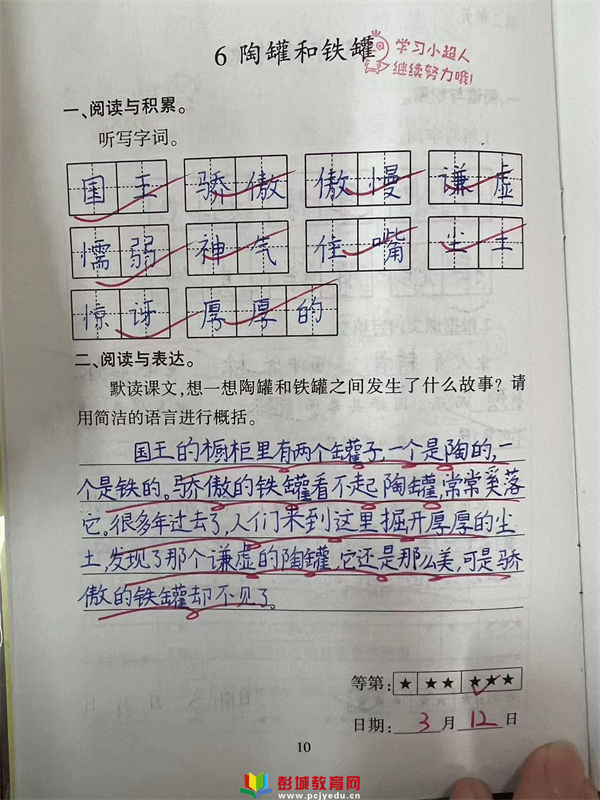 6 陶罐和铁罐
学习小超人
继续努力哦!
一、阅读与积累。
听写字词。
国王 骄傲 傲慢 谦虚
懦弱 神气 住嘴 尘土
惊讶 厚厚的
二、阅读与表达。
默读课文,想一想陶罐和铁罐之间发生了什么故事?请
用简洁的语言进行概括。
国王的橱柜里有两个罐子,一个是陶的,一
个是铁的。骄傲的铁罐看不起陶罐,常常奚落
它。很多年过去了,人们来到这里掘开厚厚的尘
土,发现了那个谦虚的陶罐,它还是那么美,可是骄
傲的铁罐却不见了。
等第: ★ ★★ ★★★
日期: 3 月 12 日
10
彭城教育网
www.pcjyedu.com